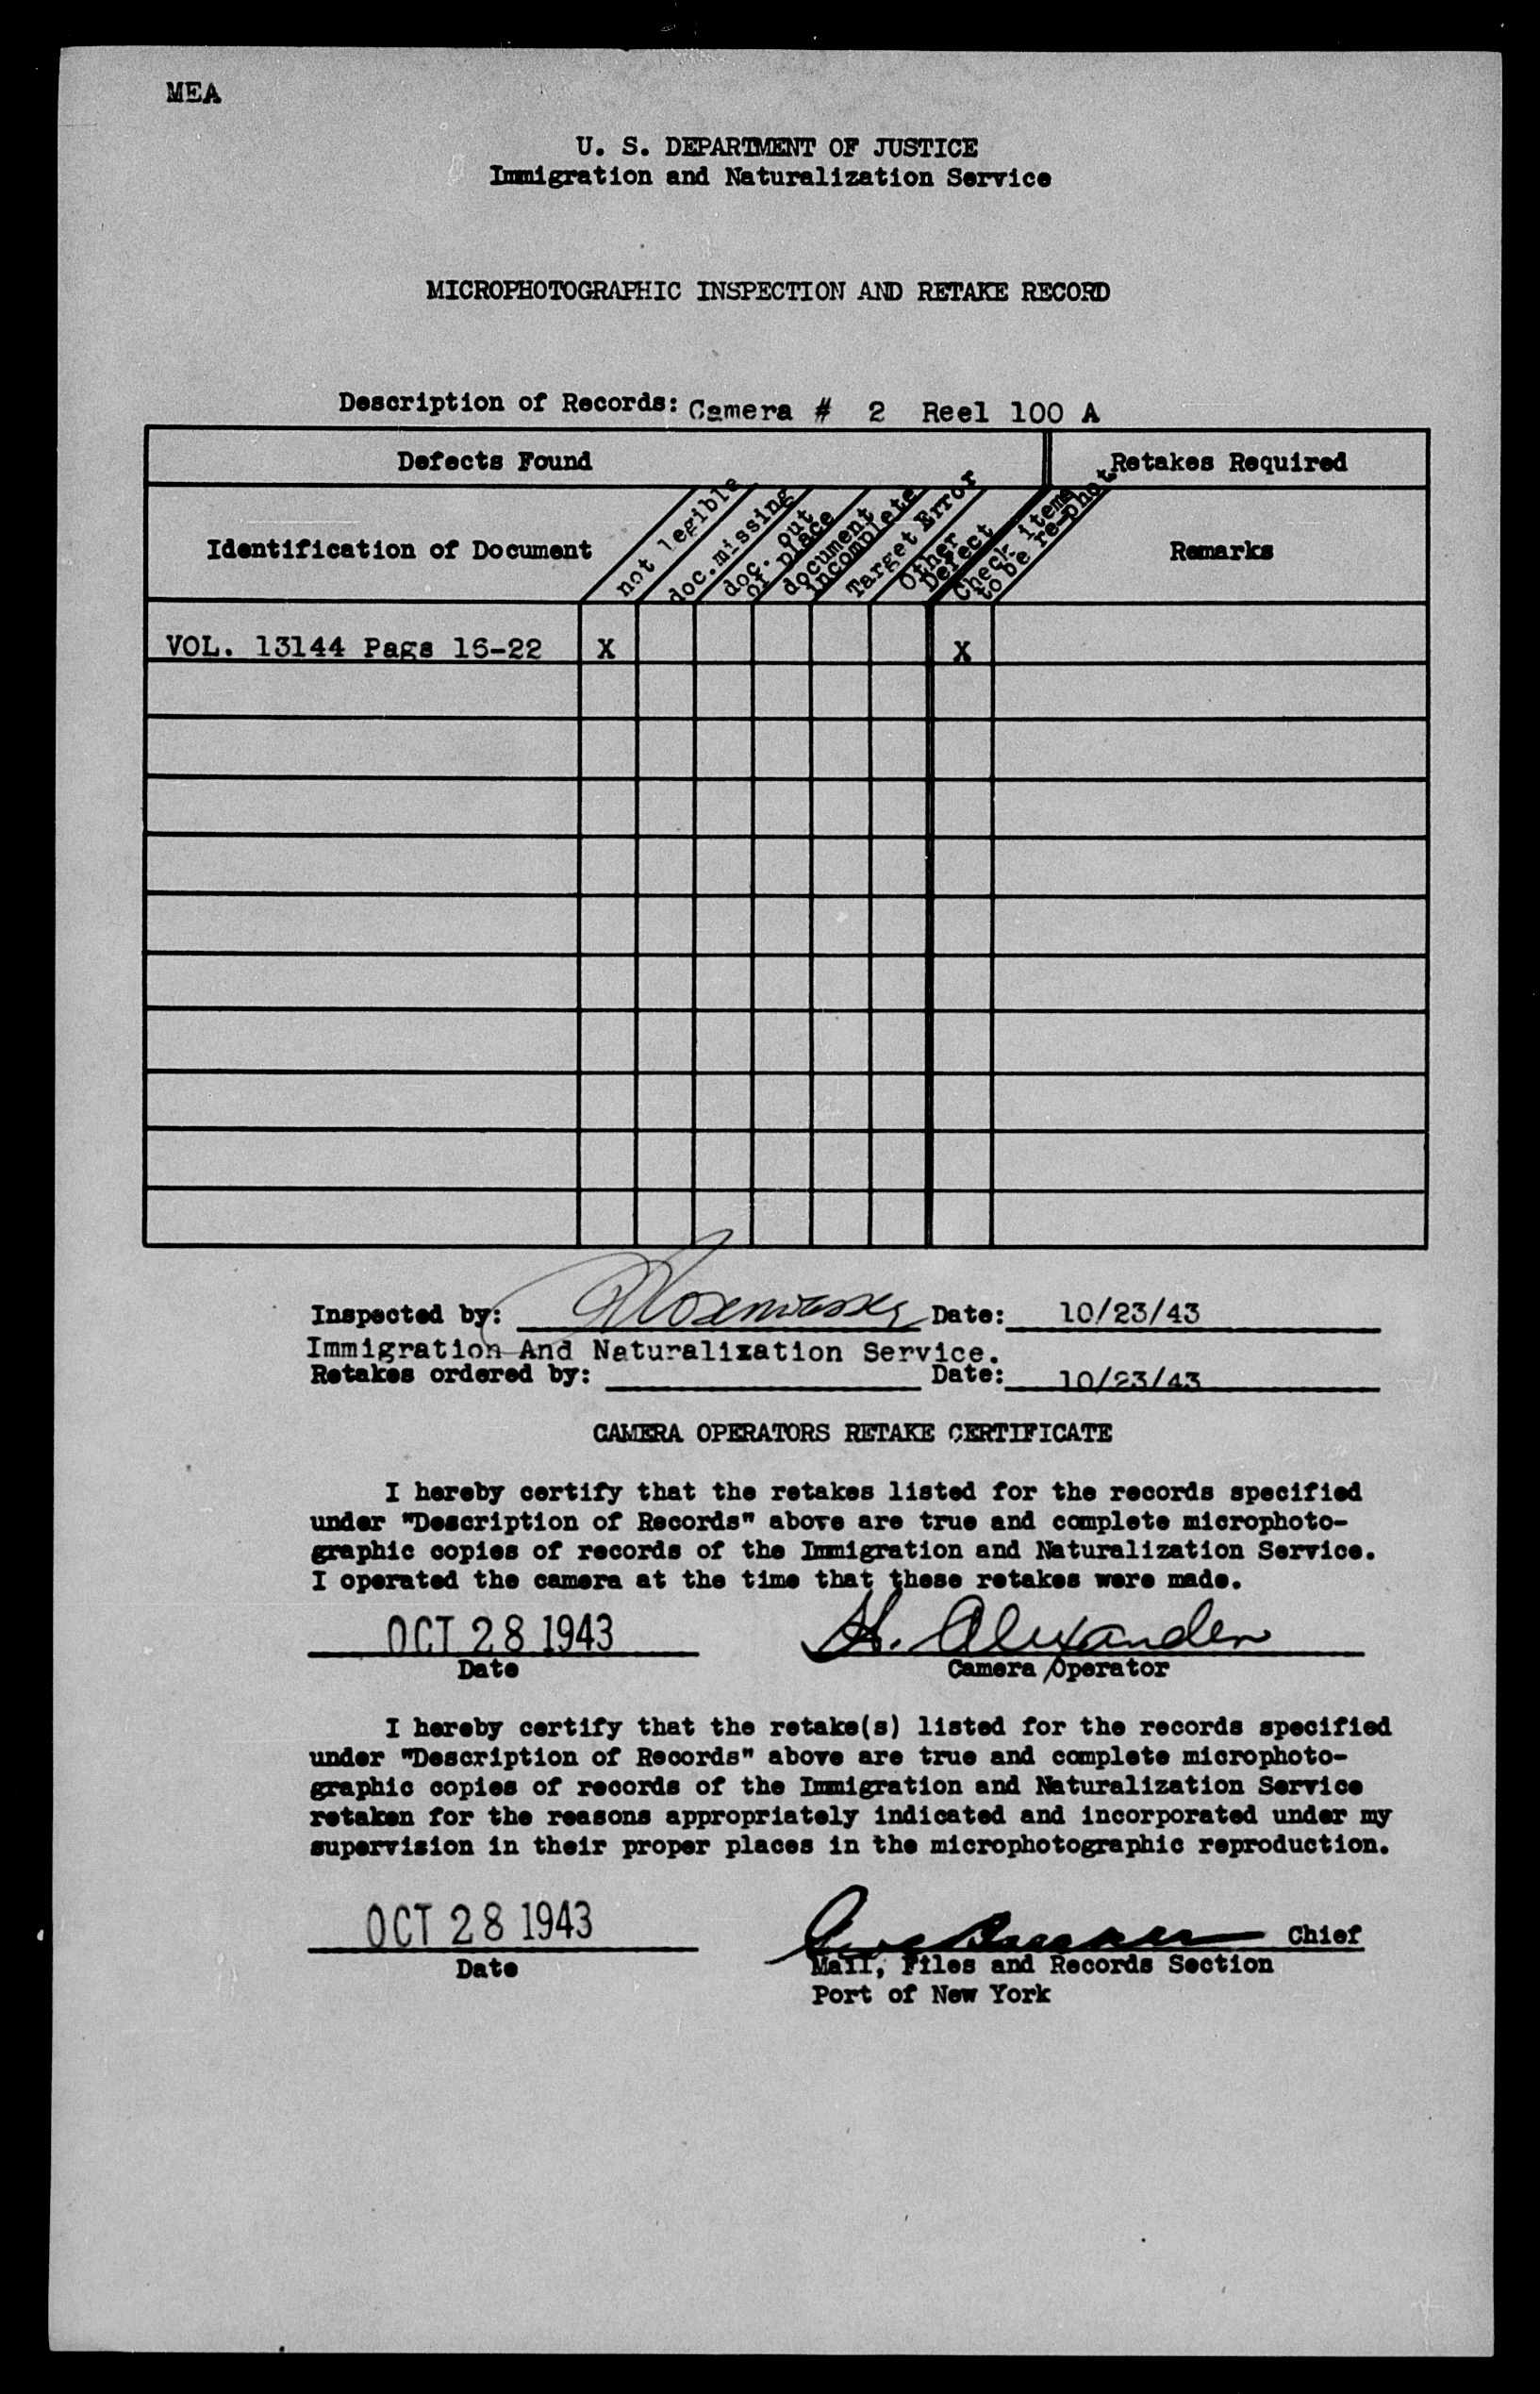 MEA
U. S. DEPARTMENT OF JUSTICE
Immigration and Naturalization Service
MICROPHOTOGRAPHIC INSPECTION AND RETAKE RECORD
Description of Records: Camera # 2 Reel 100 A
Defects Found
Retakes Required
Identification of Document
not legible
doc. missing
doc. out
of place
document
incomplete
Target Error
Other
Defect
Check items
to be re-phot.
Remarks
VOL. 13144 Pags 16-22 X X
Inspected by: Date: 10/23/43
Immigration And Naturalization Service.
Retakes ordered by: Date: 10/23/43
CAMERA OPERATORS RETAKE CERTIFICATE
I hereby certify that the retakes listed for the records specified
under "Description of Records" above are true and complete microphoto-
graphic copies of records of the Immigration and Naturalization Service.
I operated the camera at the time that these retakes were made.
OCT 28 1943 H. Alexander
Date Camera Operator
I hereby certify that the retake(s) listed for the records specified
under "Description of Records" above are true and complete microphoto-
graphic copies of records of the Immigration and Naturalization Service
retaken for the reasons appropriately indicated and incorporated under my
supervision in their proper places in the microphotographic reproduction.
OCT 28 1943 Chief
Date Mail, Files and Records Section
Port of New York